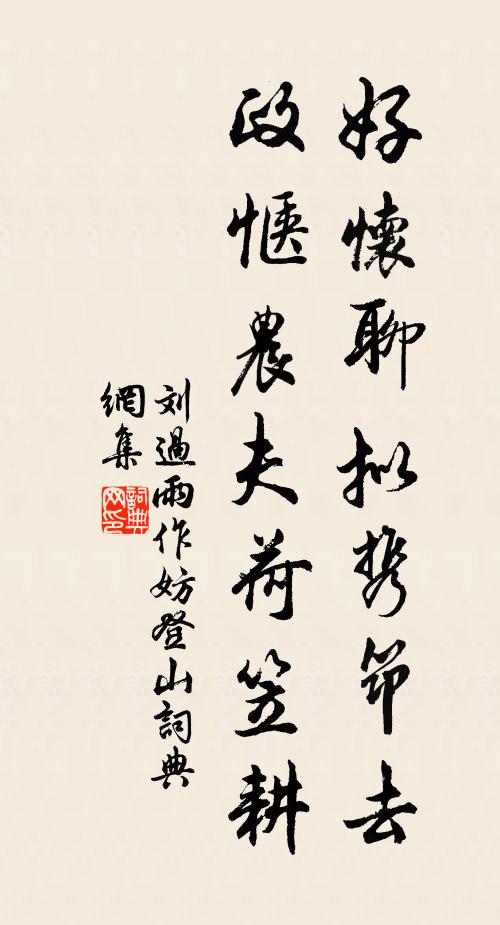 好懷聊拟携筇去
政愜農夫荷笠耕
刘過雨作妨登山詞典
網集
詞典
网印